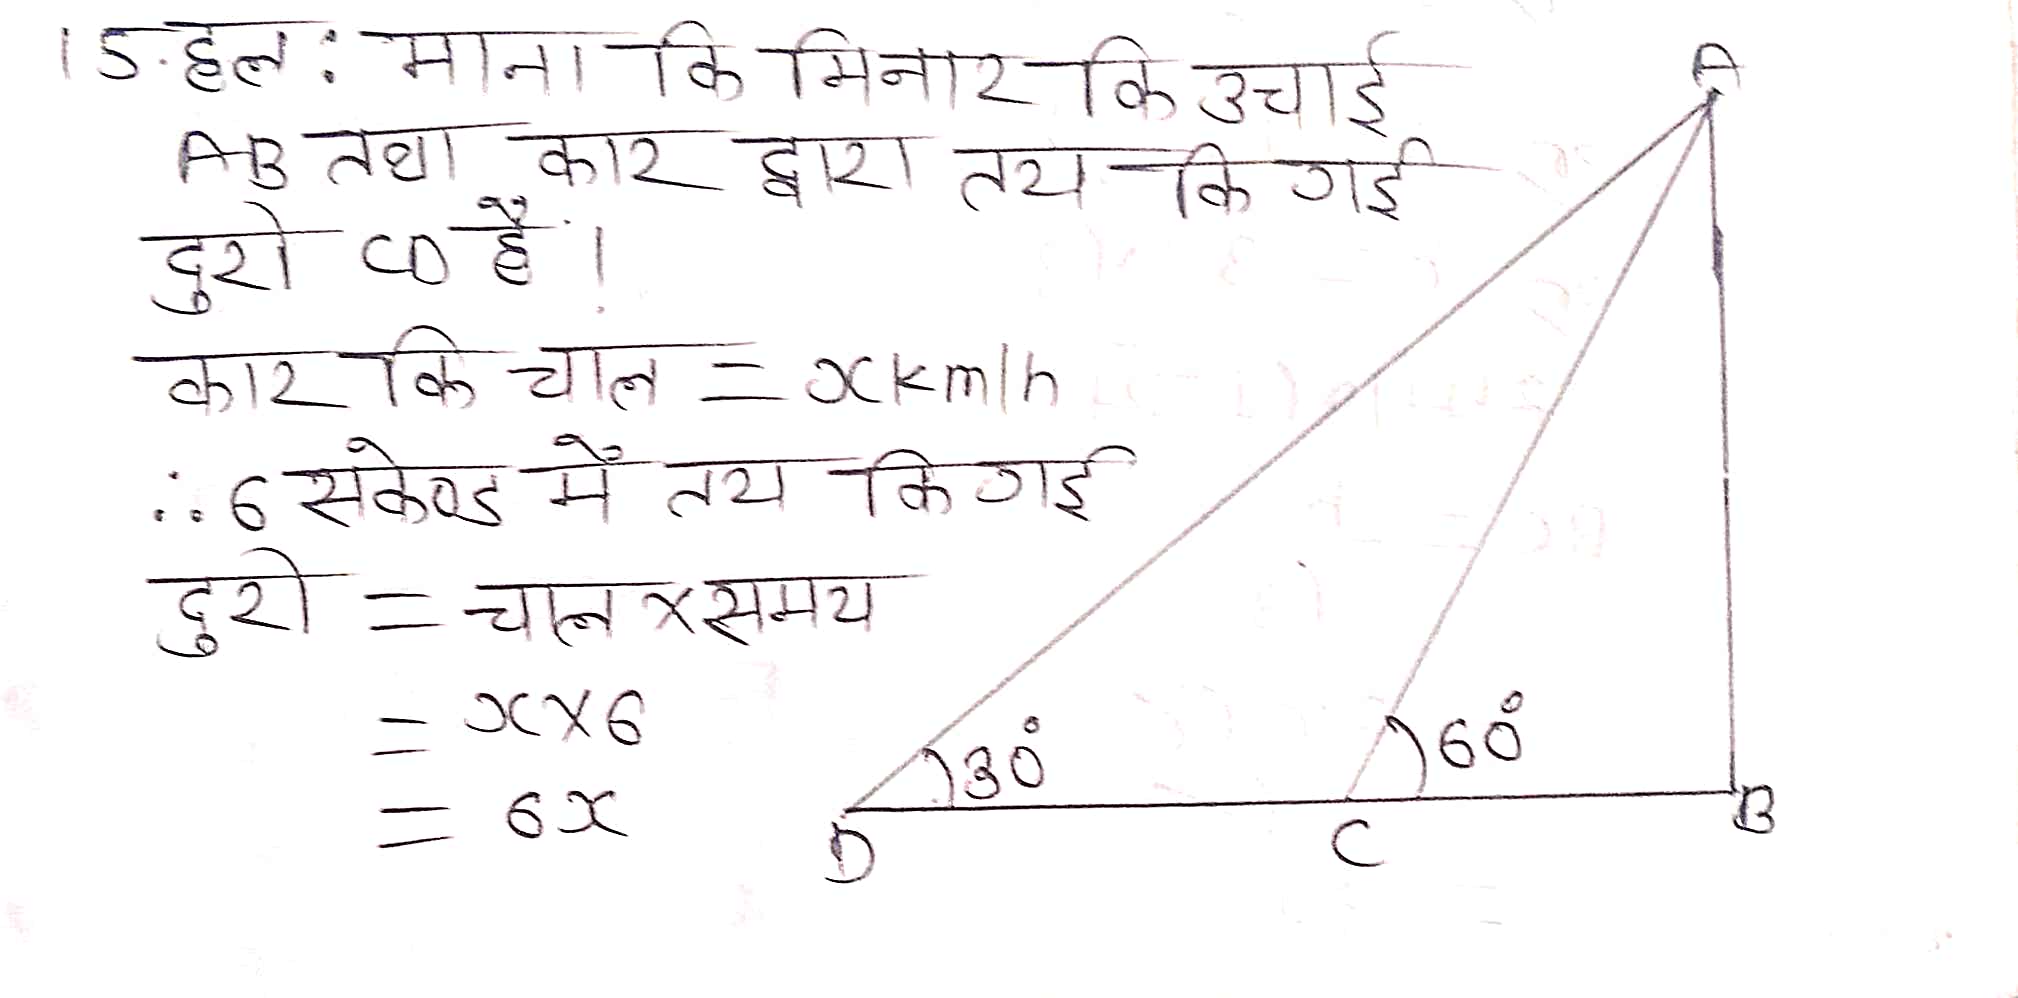 15. हल : माना कि मिनार कि उचाई
AB तथा कार द्वारा तय कि गई
दुरी CD है ।
कार कि चाल = x km/h
∴ 6 सकेण्ड में तय कि गई
दुरी = चाल × समय
= x × 6
= 6x
A
30°
60°
D
C
B